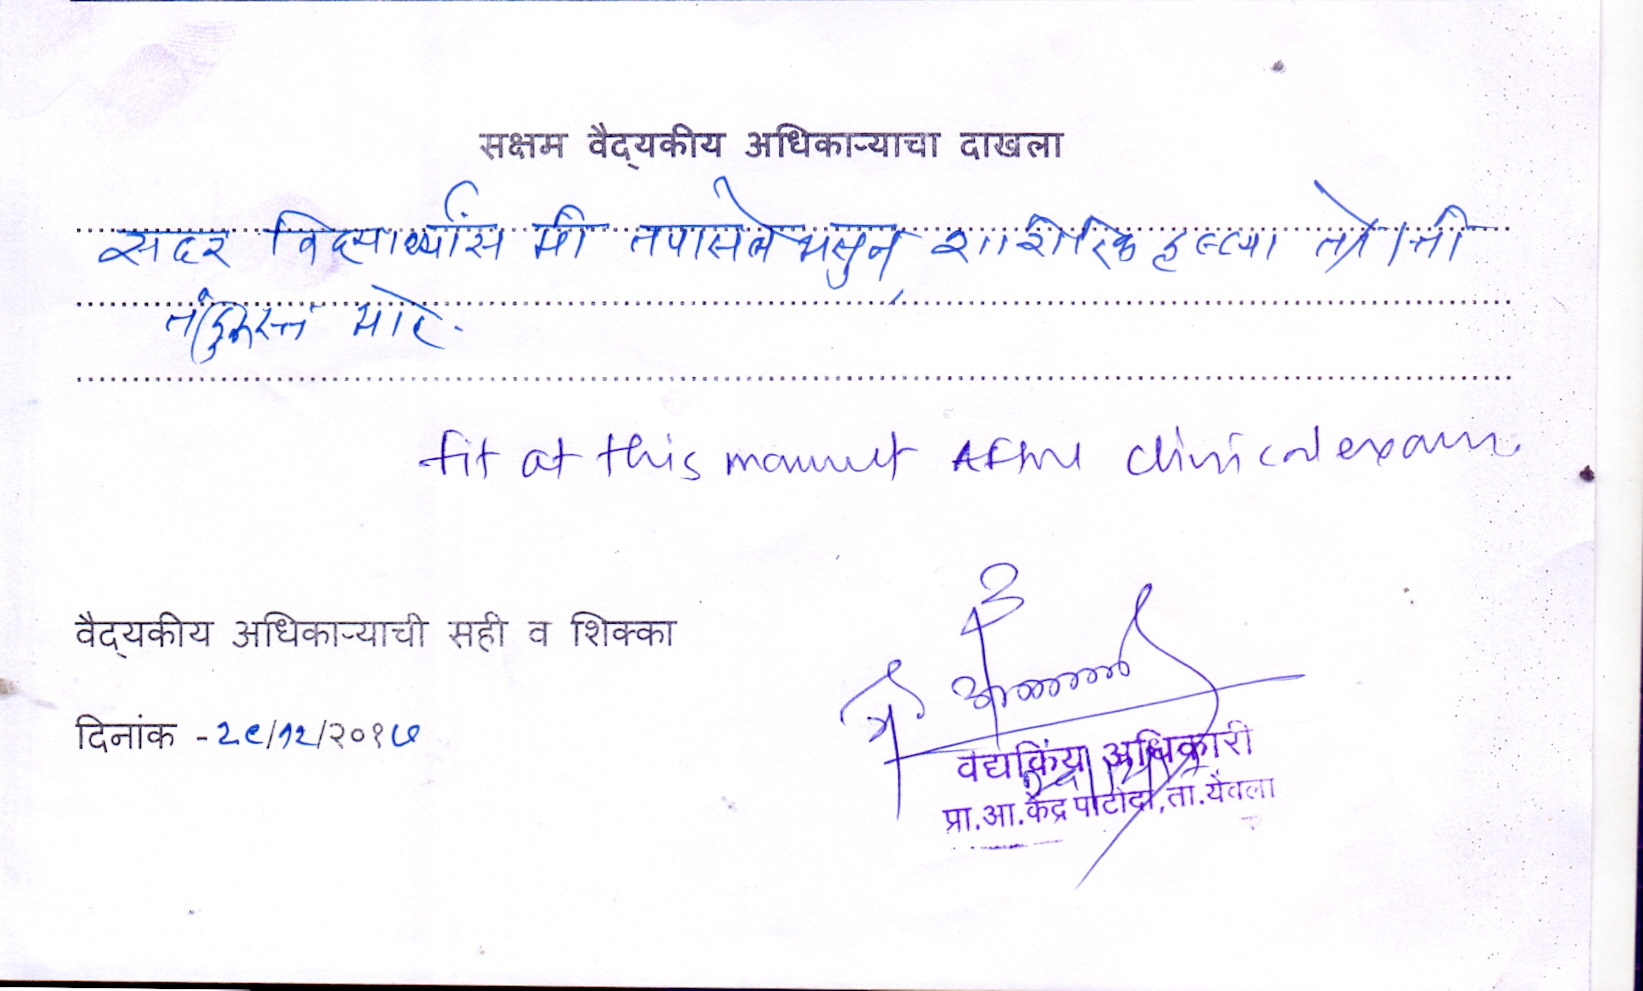 सक्षम वैद्यकीय अधिकाऱ्याचा दाखला
सदर विद्यार्थ्यास मी तपासले असुन, शारीरिक दृष्ट्या तो/ती
तंदुरुस्त आहे.
fit at this moment After clinical exam
वैद्यकीय अधिकाऱ्याची सही व शिक्का
दिनांक -२९/१२/२०१७
वैद्यकिय अधिकारी
प्रा.आ.केंद्र पाटोदा,ता.येवला